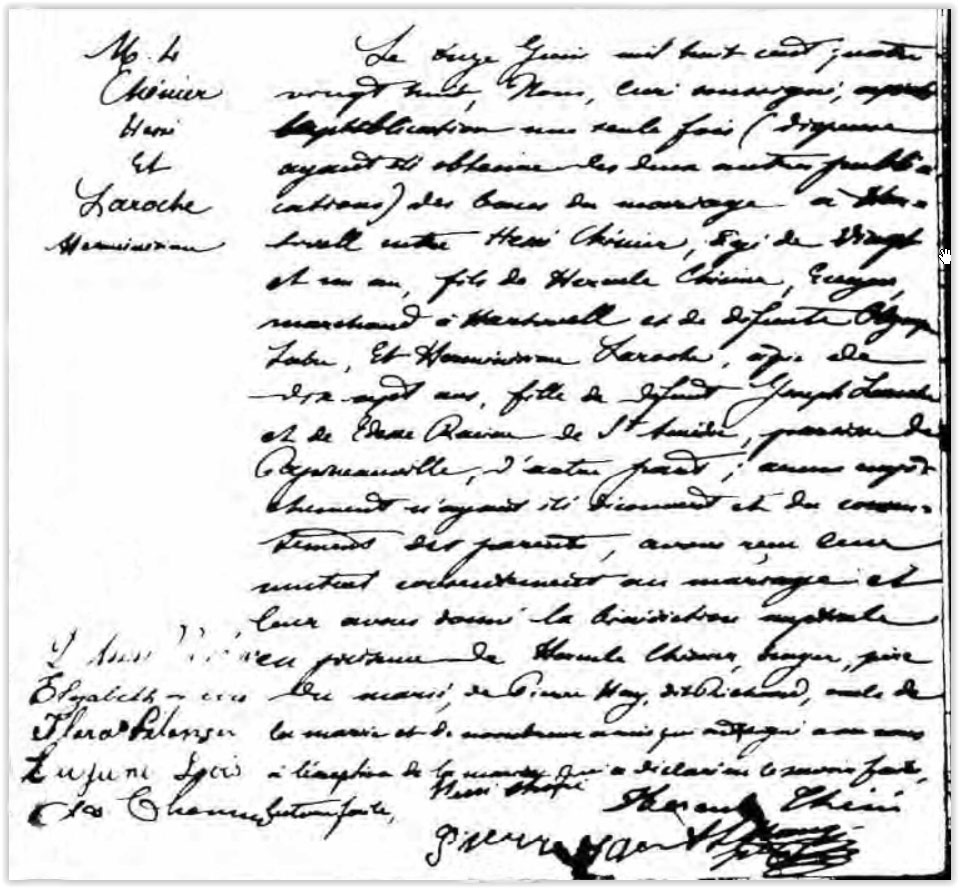 M. 4
Chénier
Henri
Et
Laroche
Herminisime
Le onze Juin mil huit cent quatre
vingt huit, Nous, curé soussigné, après
la publication une seule fois (dispense
ayant été obtenue des deux autres publi-
cations) des bans du mariage à Hart-
well entre Henri Chénier, âgé de vingt
et un an, fils de Hercule Chénier, Ecuyer,
marchand à Hartwell et de défunte Olympe
Labu, Et Herminisime Laroche, agée de
dix sept ans, fille de défunt Joseph Laroche
et de Edesse Racine de St Amédée, paroisse de
Papineauville, d'autre part; aucun empê-
chement n'ayant été découvert et du consen-
tement des parents, avons reçu leur
mutuel consentement au mariage et
leur avons donné la bénédiction nuptiale
en présence de Hercule Chénier, Ecuyer, père
du marié, de Pierre Hay, dit Richard, oncle de
la mariée et de nombreux amis qui ont signé avec nous
à l'exception de la mariée qui a déclaré ne le savoir faire,
lecture faite,
Elizabeth
Flora Bélanger
Eugene
Henri
Hercule Chénier
Pierre